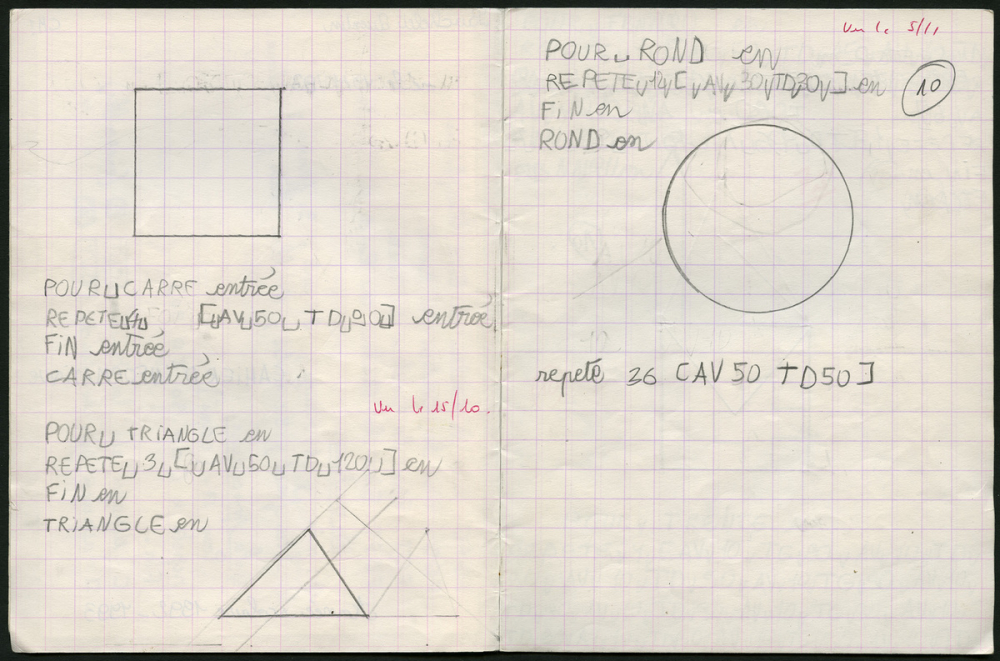 POUR␣CARRE entrée
REPETE␣4␣ [␣AV␣50␣ TD␣90␣] entrée
FiN entrée
CARRE entrée
Vu le 15/10.
POUR␣ TRiANGLE en
REPETE␣ 3␣ [␣AV␣50␣ TD␣120␣] en
FiN en
TRiANGLE en
Vu le 5/11
POUR␣ ROND en
REPETE␣12␣[␣AV␣ 30␣TD␣30␣] en
10
FiN en
ROND en
repeté 36 [AV 50 TD50]